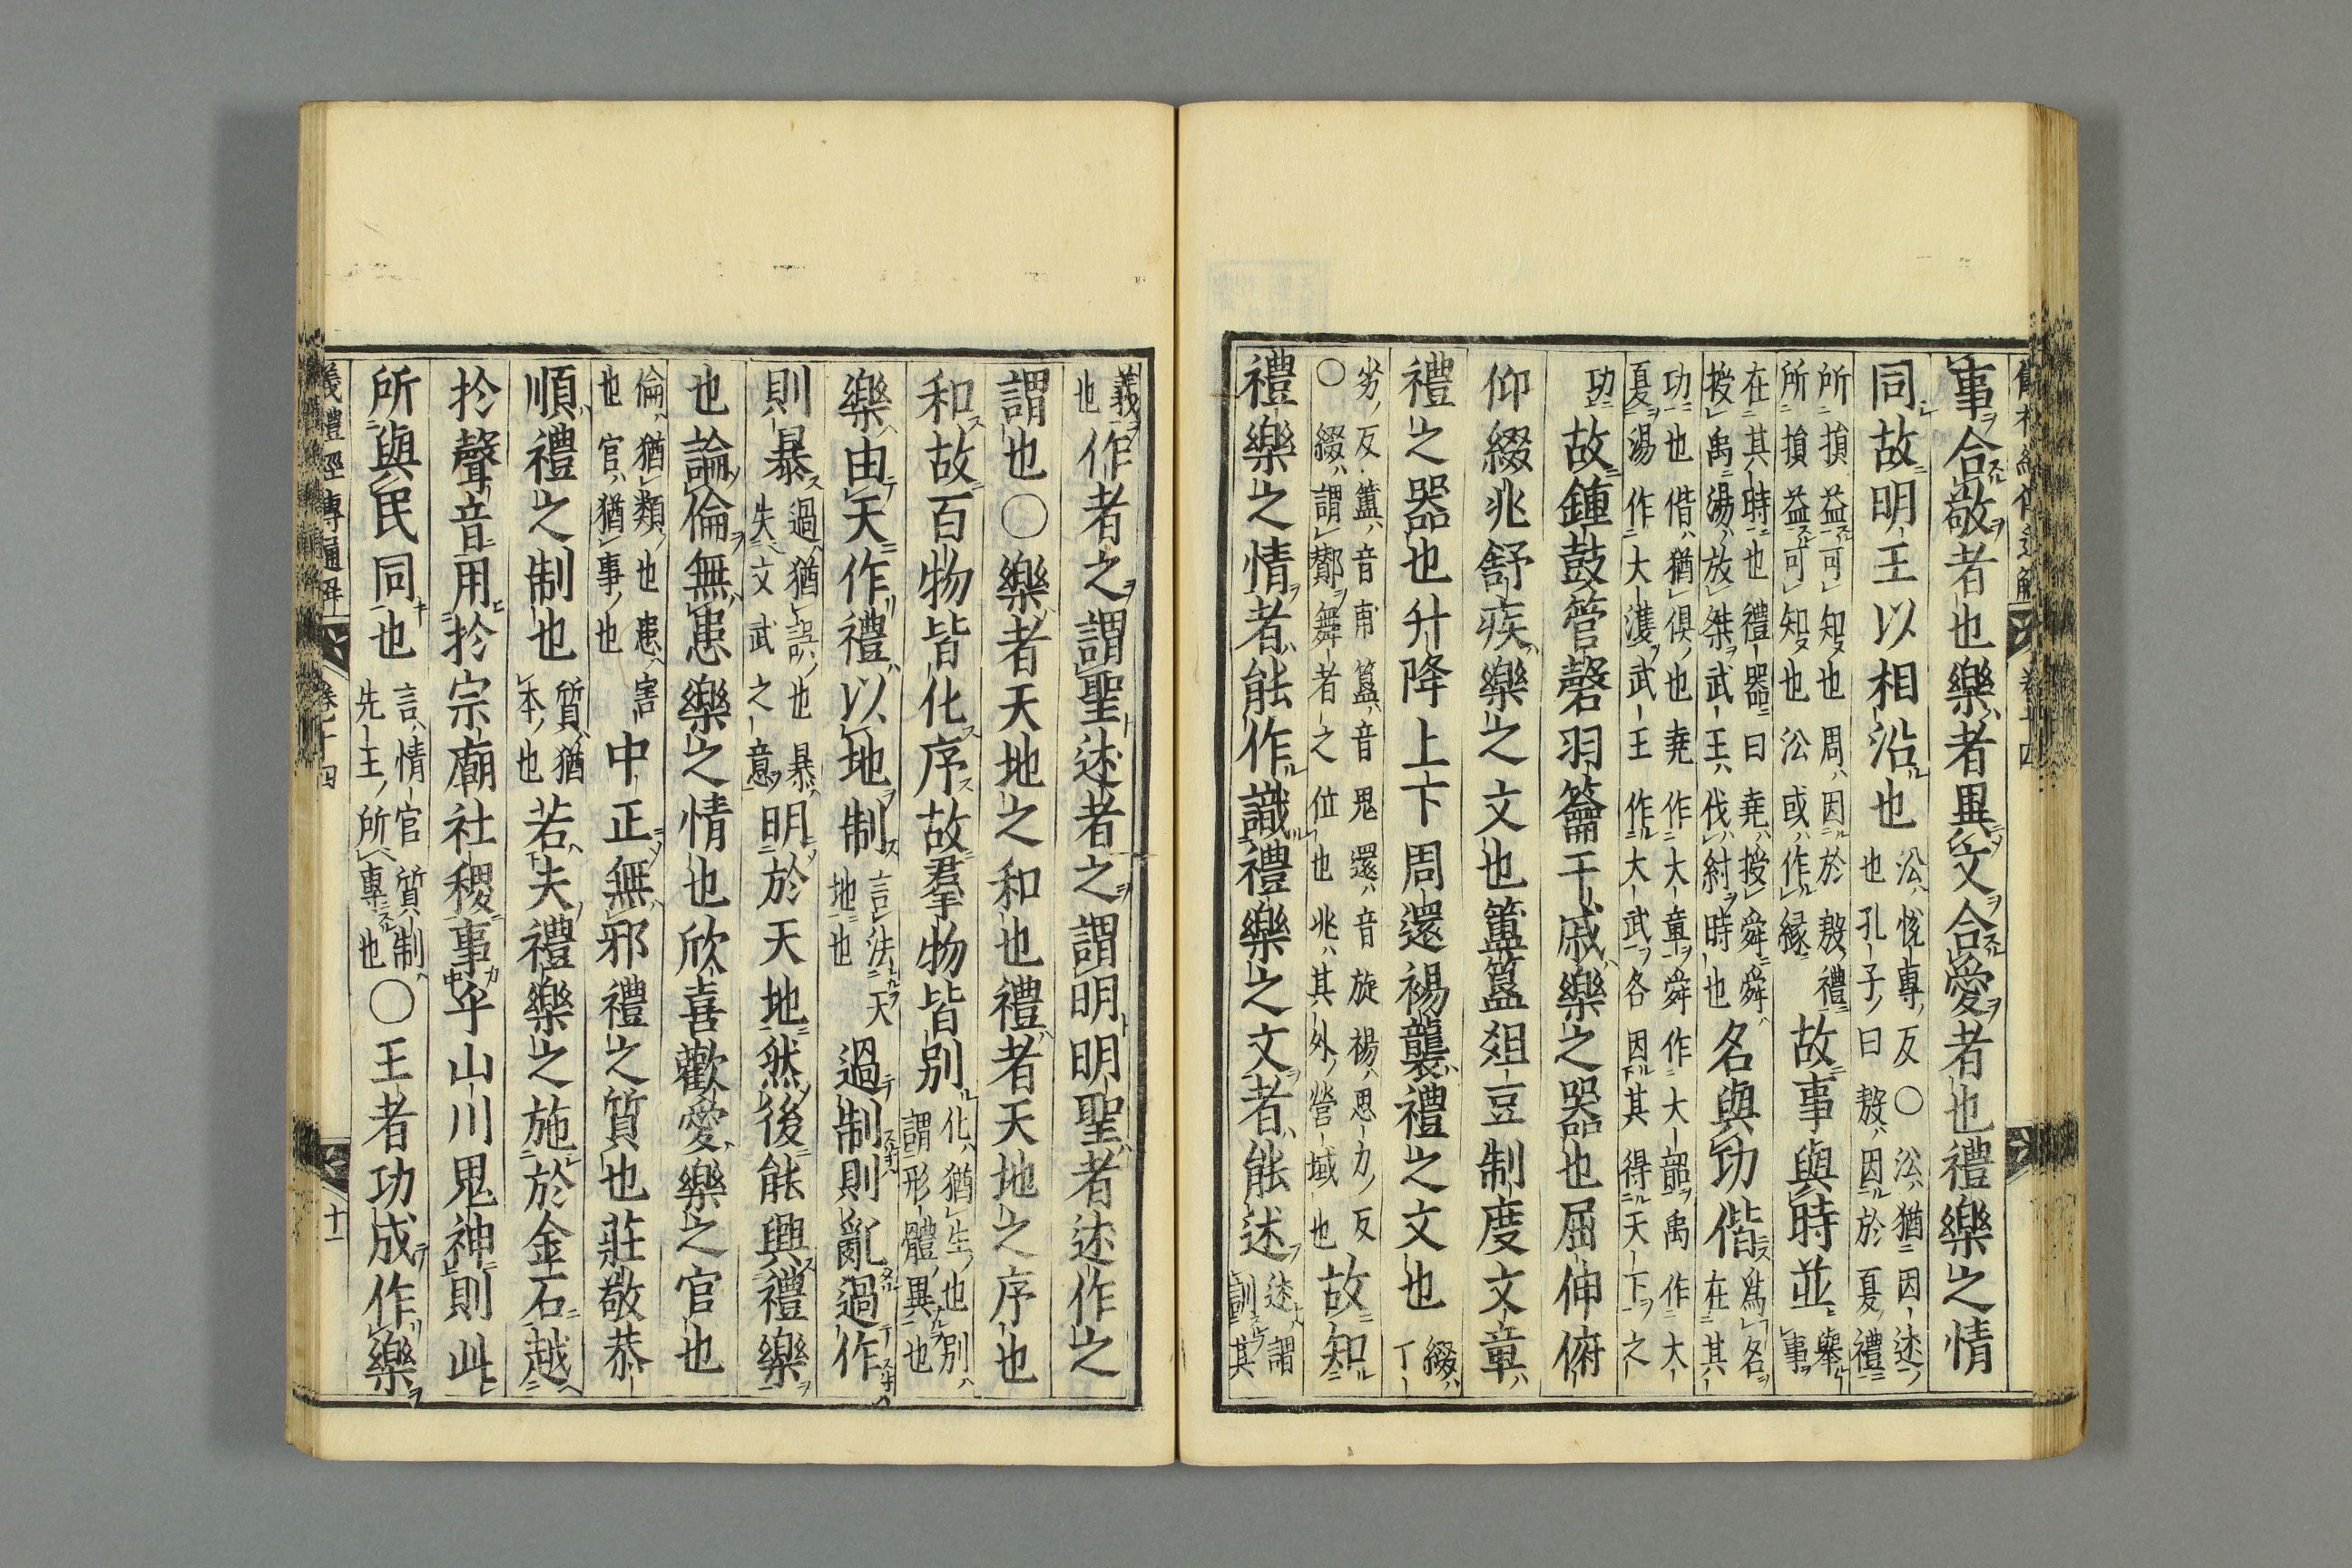 事合敬者也樂者異文合愛者也禮樂之情
同故明王以相沿也
沿悅專反○沿猶因述
也孔子曰殷因於夏禮
所損益可知也周因於殷禮
所損益可知也沿或作緣
故事與時並
舉
事
在其時也禮器曰堯授舜舜
授禹湯放桀武王伐紂時也
名與功偕
爲名
在其
功也偕猶俱也堯作大章舜作大韶禹作大
夏湯作大濩武王作大武各因其得天下之
功
故鍾鼓管磬羽籥干戚樂之器也屈伸俯
仰綴兆舒疾樂之文也簠簋俎豆制度文章
禮之器也升降上下周還裼襲禮之文也
綴
丁
劣反簠音甫簋音鬼還音旋裼思力反
○綴謂酇舞者之位也兆其外營域也
故知
禮樂之情者能作識禮樂之文者能述
述謂
訓其
義
也
作者之謂聖述者之謂明明聖者述作之
謂也○樂者天地之和也禮者天地之序也
和故百物皆化序故羣物皆別
化猶生也別
謂形體異也
樂由天作禮以地制
言法天
地也
過制則亂過作
則暴
過猶誤也暴
失文武之意
明於天地然後能興禮樂
也論倫無患樂之情也欣喜歡愛樂之官也
倫猶類也患害
也官猶事也
中正無邪禮之質也莊敬恭
順禮之制也
質猶
本也
若夫禮樂之施於金石越
於聲音用於宗廟社稷事乎山川鬼神則此
所與民同也
言情官質制
先王所專也
○王者功成作樂
儀禮經傳通解 卷十四 十一